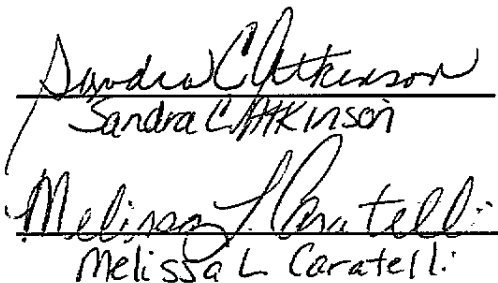 Sandra C Atkinson
Sandra C. Atkinson
Melissa L. Caratelli
Melissa L Caratelli